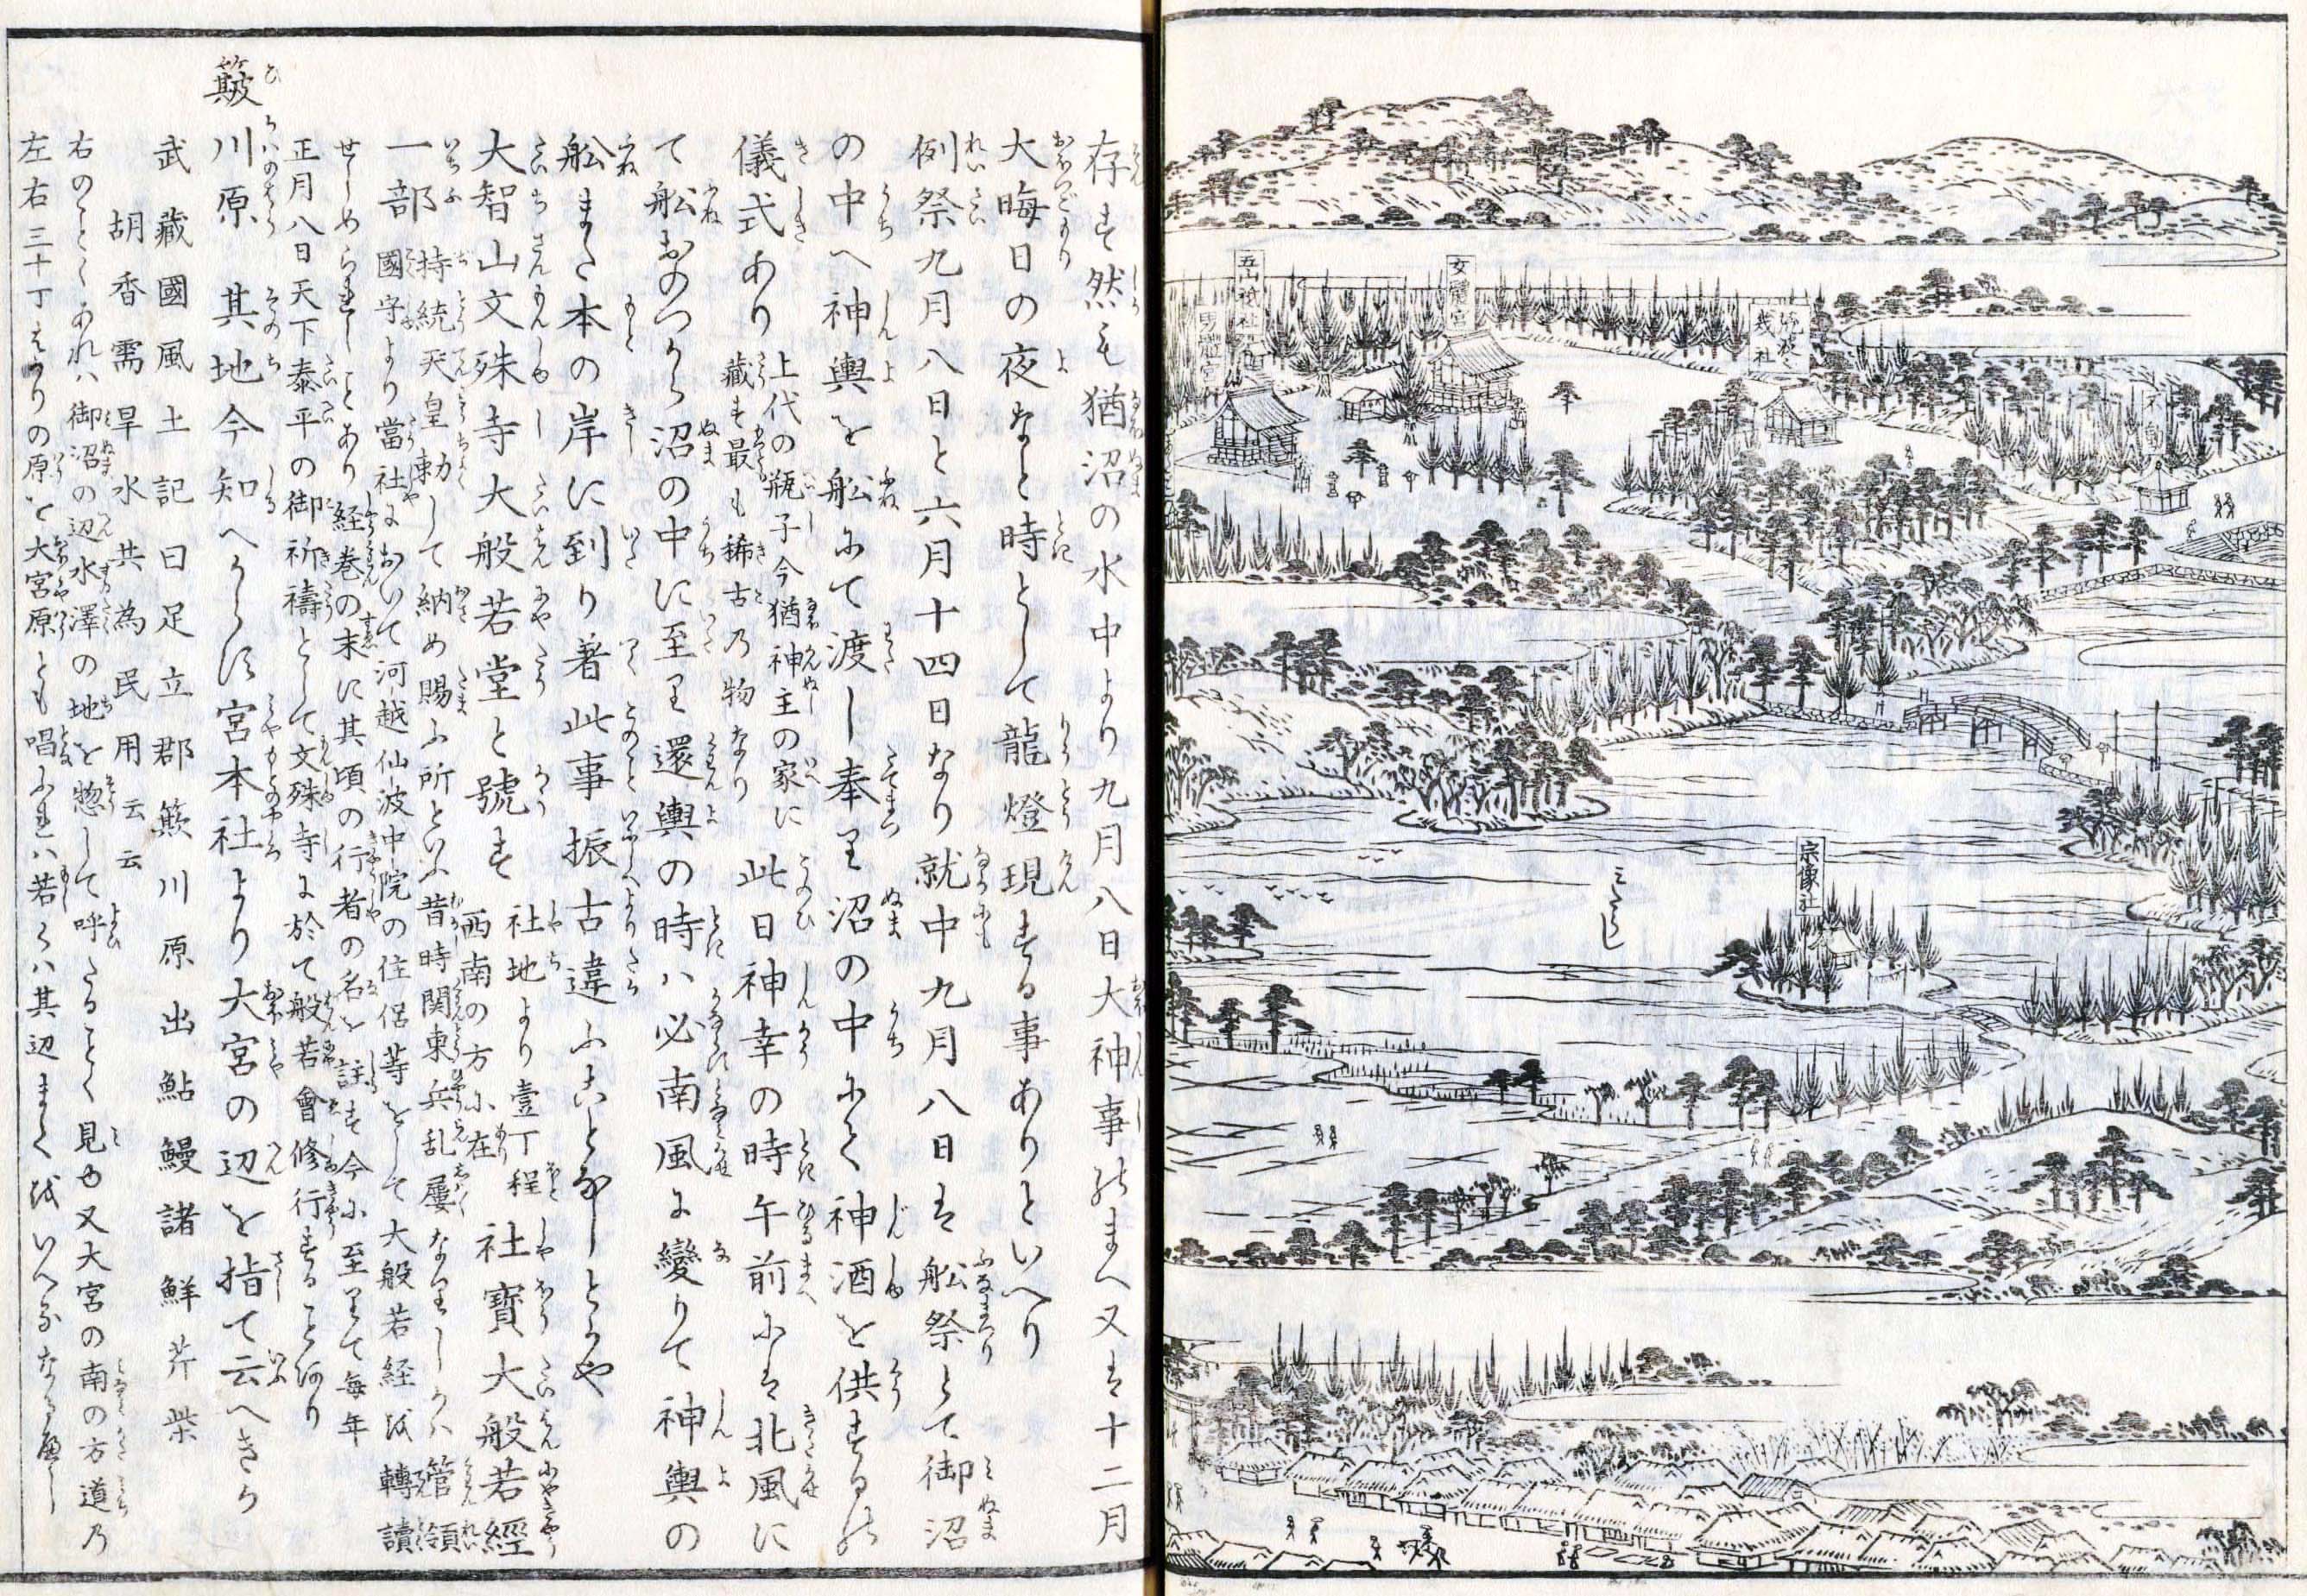 五山祇社
男體宮
女體宮
荒波々幾社
宗像社
みたらし
存す然も猶沼の水中より九月八日大神事のまへ又は十二月
大晦日の夜など時として龍燈現する事ありといへり
例祭九月八日と六月十四日なり就中九月八日は舩祭とて御沼
の中へ神輿を舩にて渡し奉り沼の中にて神酒を供するの
儀式あり上代の瓶子今猶神主の家に
藏す最も稀古乃物なり此日神幸の時午前には北風に
て舩おのつから沼の中に至り還輿の時ハ必南風に變りて神輿の
舩また本の岸に到り着此事振古違ふことなしとかや
大智山文殊寺大般若堂と號す社地より壹丁程
西南の方に在社寶大般若經
一部持統天皇勅して納め賜ふ所といふ昔時関東兵乱屢なりしかハ管領
國守より當社において河越仙波中院の住侶等をして大般若経を轉讀
せしめられしことあり経巻の末に其頃の行者の名を註す今に至りて毎年
正月八日天下泰平の御祈禱として文殊寺に於て般若會修行することあり
簸川原其地今知へからす宮本社より大宮の辺を指て云へきか
武藏國風土記曰足立郡簸川原出鮎鰻諸鮮芹柴
胡香需旱水共為民用云云
右のことくあれハ御沼の辺水澤の地を惣して呼たることく見ゆ又大宮の南の方道乃
左右三十丁はかりの原を大宮原とも唱ふれハ若くハ其辺まてをいへるなるへし